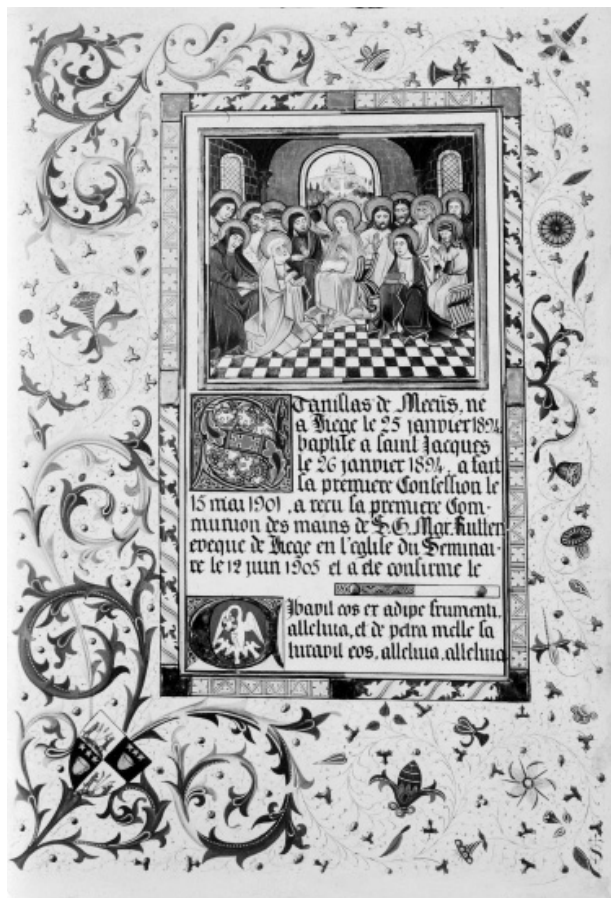 Stanislas de Meeûs, né
a Liege le 25 janvier 1894,
baptise a saint Jacques
le 26 janvier 1894, a fait
sa premiere Confession le
15 mai 1901, a recu sa premiere Com-
munion des mains de S.G. Mgr. Rutten
eveque de Liege en l'eglise du Seminai-
re le 12 juin 1905 et a ete confirme le
Cibavit eos ex adipe frumenti,
alleluia, et de petra melle sa
turavit eos, alleluia, alleluia